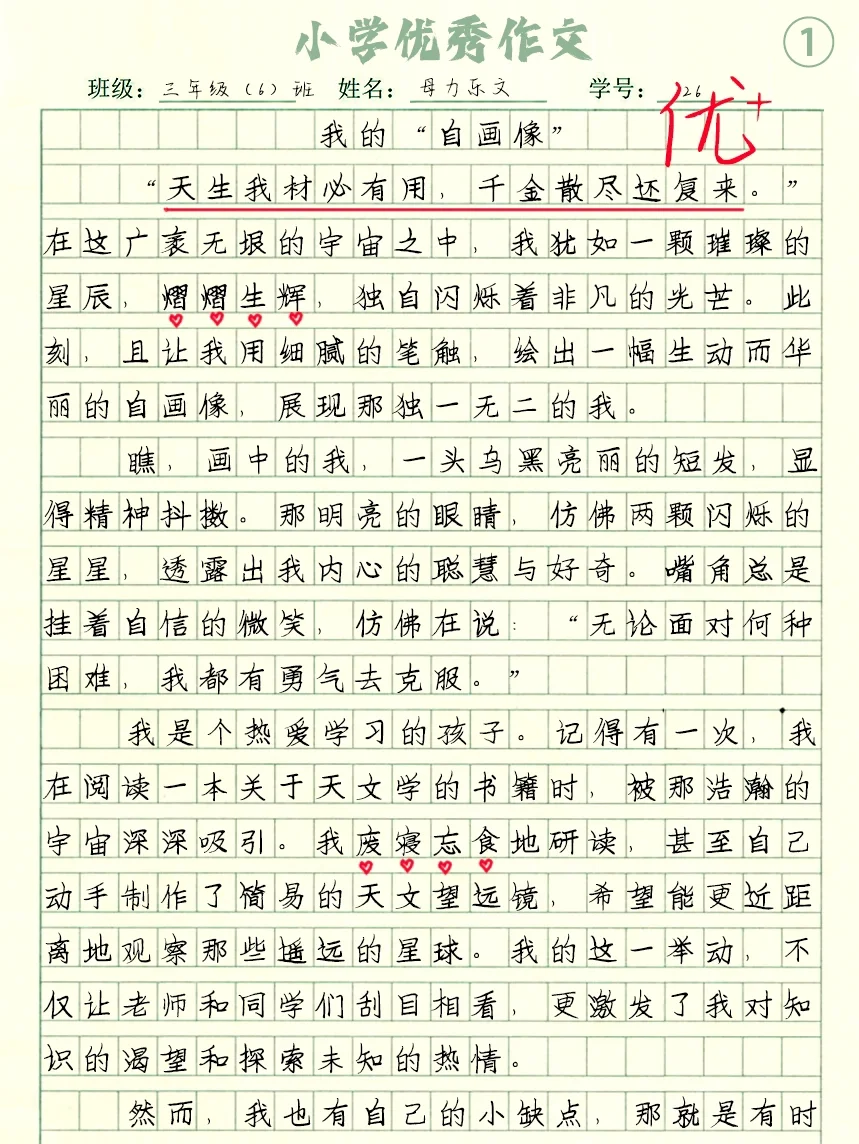 小学优秀作文
1
班级：三年级（6）班 姓名：母力乐文 学号：26
优+
我的“自画像”
“天生我材必有用，千金散尽还复来。”
在这广袤无垠的宇宙之中，我犹如一颗璀璨的
星辰，熠熠生辉，独自闪烁着非凡的光芒。此
刻，且让我用细腻的笔触，绘出一幅生动而华
丽的自画像，展现那独一无二的我。
瞧，画中的我，一头乌黑亮丽的短发，显
得精神抖擞。那明亮的眼睛，仿佛两颗闪烁的
星星，透露出我内心的聪慧与好奇。嘴角总是
挂着自信的微笑，仿佛在说：“无论面对何种
困难，我都有勇气去克服。”
我是个热爱学习的孩子。记得有一次，我
在阅读一本关于天文学的书籍时，被那浩瀚的
宇宙深深吸引。我废寝忘食地研读，甚至自己
动手制作了简易的天文望远镜，希望能更近距
离地观察那些遥远的星球。我的这一举动，不
仅让老师和同学们刮目相看，更激发了我对知
识的渴望和探索未知的热情。
然而，我也有自己的小缺点，那就是有时